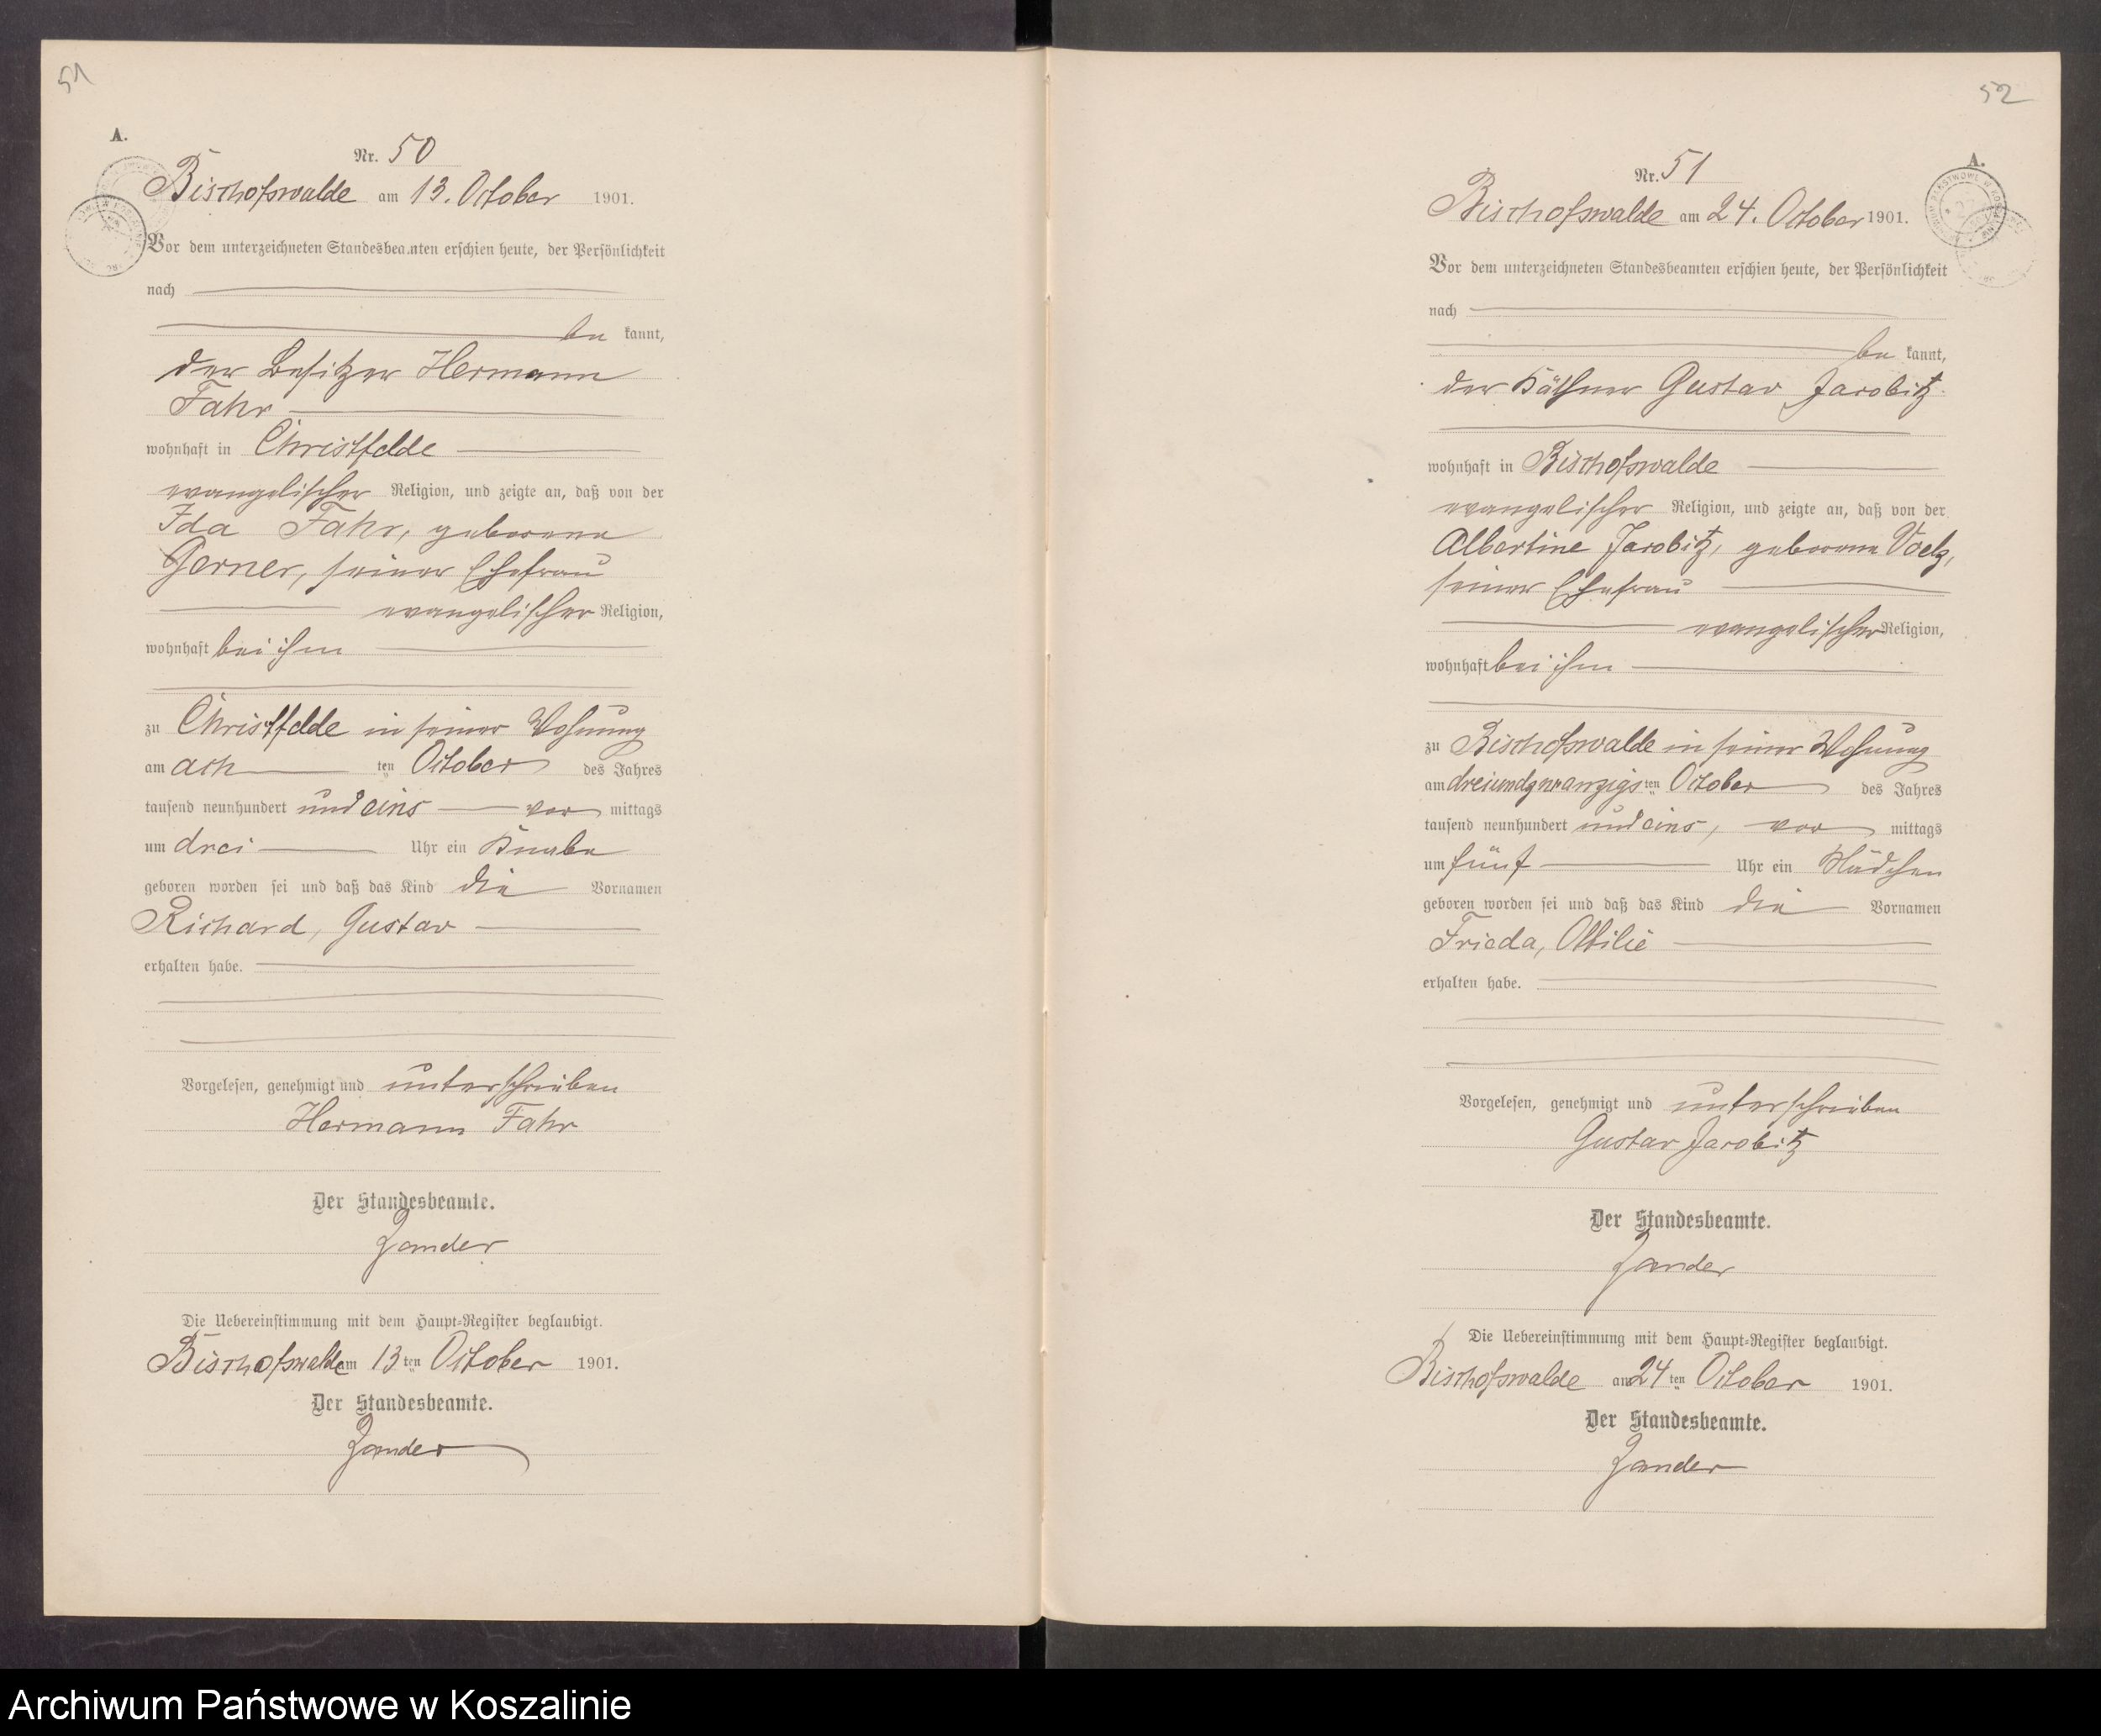 51
A.
Nr. 50
Bischofswalde am 13. October 1901.
Vor dem unterzeichneten Standesbeamten erschien heute, der Persönlichkeit
nach
be kannt,
der Besitzer Hermann
Fahr
wohnhaft in Christfelde
evangelischer Religion, und zeigte an, daß von der
Ida Fahr, geborene
Gerner, seiner Ehefrau
evangelischer Religion,
wohnhaft bei ihm
zu Christfelde in seiner Wohnung
am ach ten October des Jahres
tausend neunhundert und eins vor mittags
um drei Uhr ein Knabe
geboren worden sei und daß das Kind die Vornamen
Richard, Gustav
erhalten habe.
Vorgelesen, genehmigt und unterschrieben
Hermann Fahr
Der Standesbeamte.
Zander
Die Uebereinstimmung mit dem Haupt-Register beglaubigt.
Bischofswalde am 13 ten October 1901.
Der Standesbeamte.
Zander
52
A.
Nr. 51
Bischofswalde am 24. October 1901.
Vor dem unterzeichneten Standesbeamten erschien heute, der Persönlichkeit
nach
be kannt,
der Käthner Gustav Jacobitz
wohnhaft in Bischofswalde
evangelischer Religion, und zeigte an, daß von der
Albertine Jacobitz, geborene Voelz,
seiner Ehefrau
evangelischer Religion,
wohnhaft bei ihm
zu Bischofswalde in seiner Wohnung
am dreiundzwanzigs ten October des Jahres
tausend neunhundert und eins, vor mittags
um fünf Uhr ein Mädchen
geboren worden sei und daß das Kind die Vornamen
Frieda, Ottilie
erhalten habe.
Vorgelesen, genehmigt und unterschrieben
Gustav Jacobitz
Der Standesbeamte.
Zander
Die Uebereinstimmung mit dem Haupt-Register beglaubigt.
Bischofswalde am 24 ten October 1901.
Der Standesbeamte.
Zander
Archiwum Państwowe w Koszalinie